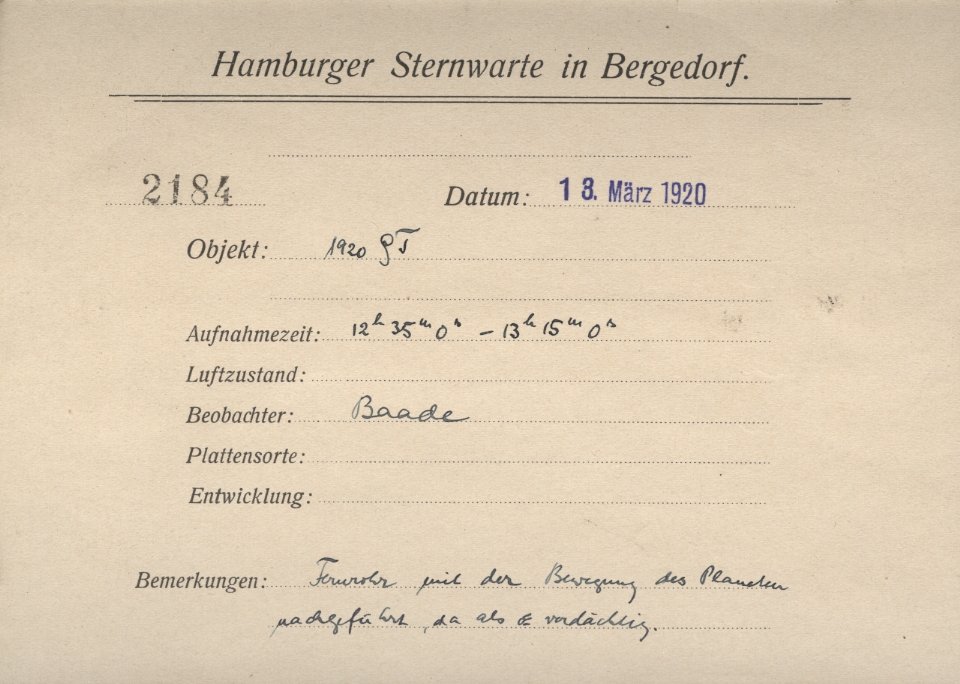 Hamburger Sternwarte in Bergedorf.
2184 Datum: 13. März 1920
Objekt: 1920 GT
Aufnahmezeit: 12ʰ 35ᵐ 0ˢ – 13ʰ 15ᵐ 0ˢ
Luftzustand:
Beobachter: Baade
Plattensorte:
Entwicklung:
Bemerkungen: Fernrohr mit der Bewegung des Planeten
nachgeführt, da als verdächtig.